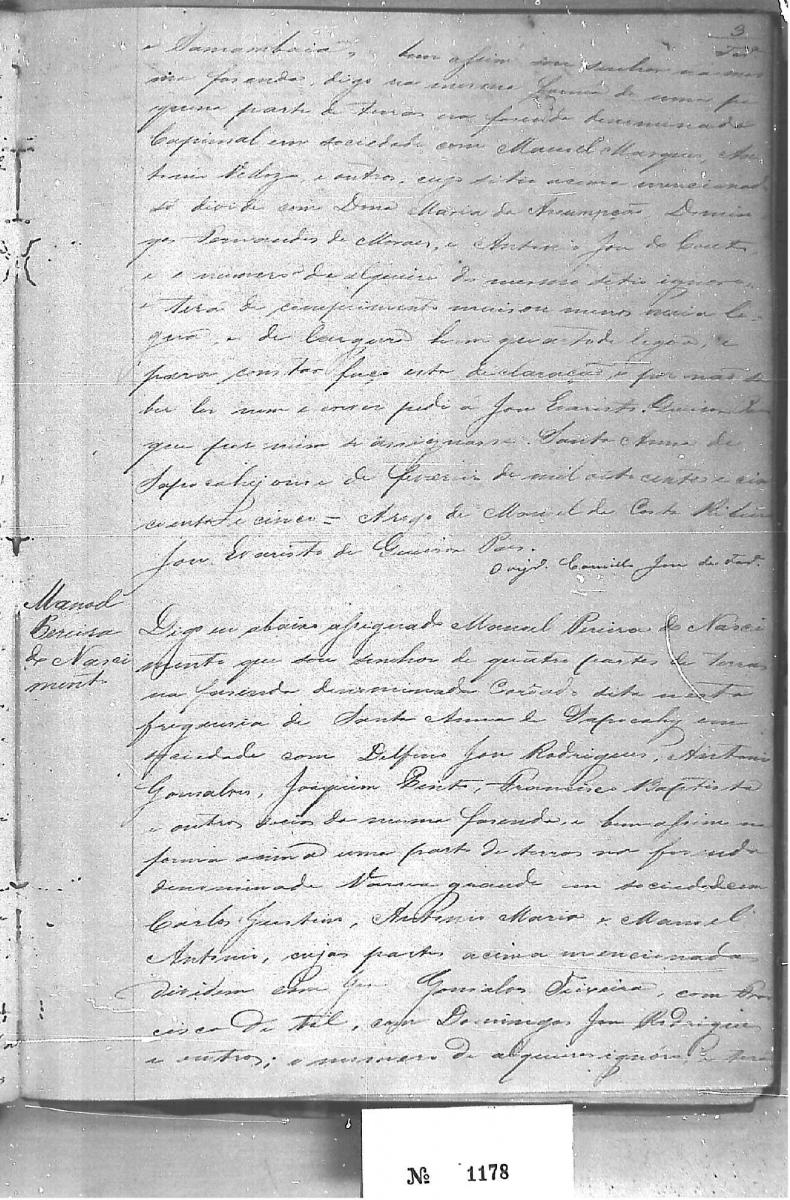 3
e Samambaia, bem assim sou senhor na mes
ma fazenda, digo na mesma forma de uma pe
quena parte de terras na fazenda denominada
Capinzal em sociedade com Manoel Marques, An
tonio Velloza, e outros, cujo sitio acima mencionado
se divide com Dona Maria da Assumpção, Domin
gos Fernandes de Moraes, e Antonio Joze do Couto,
e o numero de alqueire do mesmo sitio ignoro,
e terá de comprimento mais ou menos meia le-
goa, e de largura hum quarto de legoa, e
para constar faço esta declaração, e por não sa
ber ler nem escrever pedi á Joze Evaristo
que por mim se assignasse. Santa Anna de
Sapocahy onze de Fevereiro de mil oito centos e cin
coenta e cinco = Arogo de Manoel da Costa Ribeiro
Joze Evaristo de
Camillo Joze da
Manoel
Pereira
do Nasci
mento
Digo eu abaixo assignado Manoel Pereira do Nasci
mento que sou senhor de quatro partes de terras
na fazenda denominada sita nesta
freguezia de Santa Anna de Sapocahy em
sociedade com Delfino Joze Rodrigues, Antonio
Gonsalves, Joaquim Bento, Francisco Baptista
e outros socios da mesma fazenda, e bem assim na
forma acima uma parte de terras na fazenda
denominada Varge grande em sociedade com
Carlos Justino, Antonio Maria e Manoel
Antonio, cujas partes acima mencionadas
dividem com Gonsalves Teixeira, com Fran
cisco de tal, com Domingos Joze Rodrigues
e outros; o numero de alqueires ignoro, e terá
Nº 1178